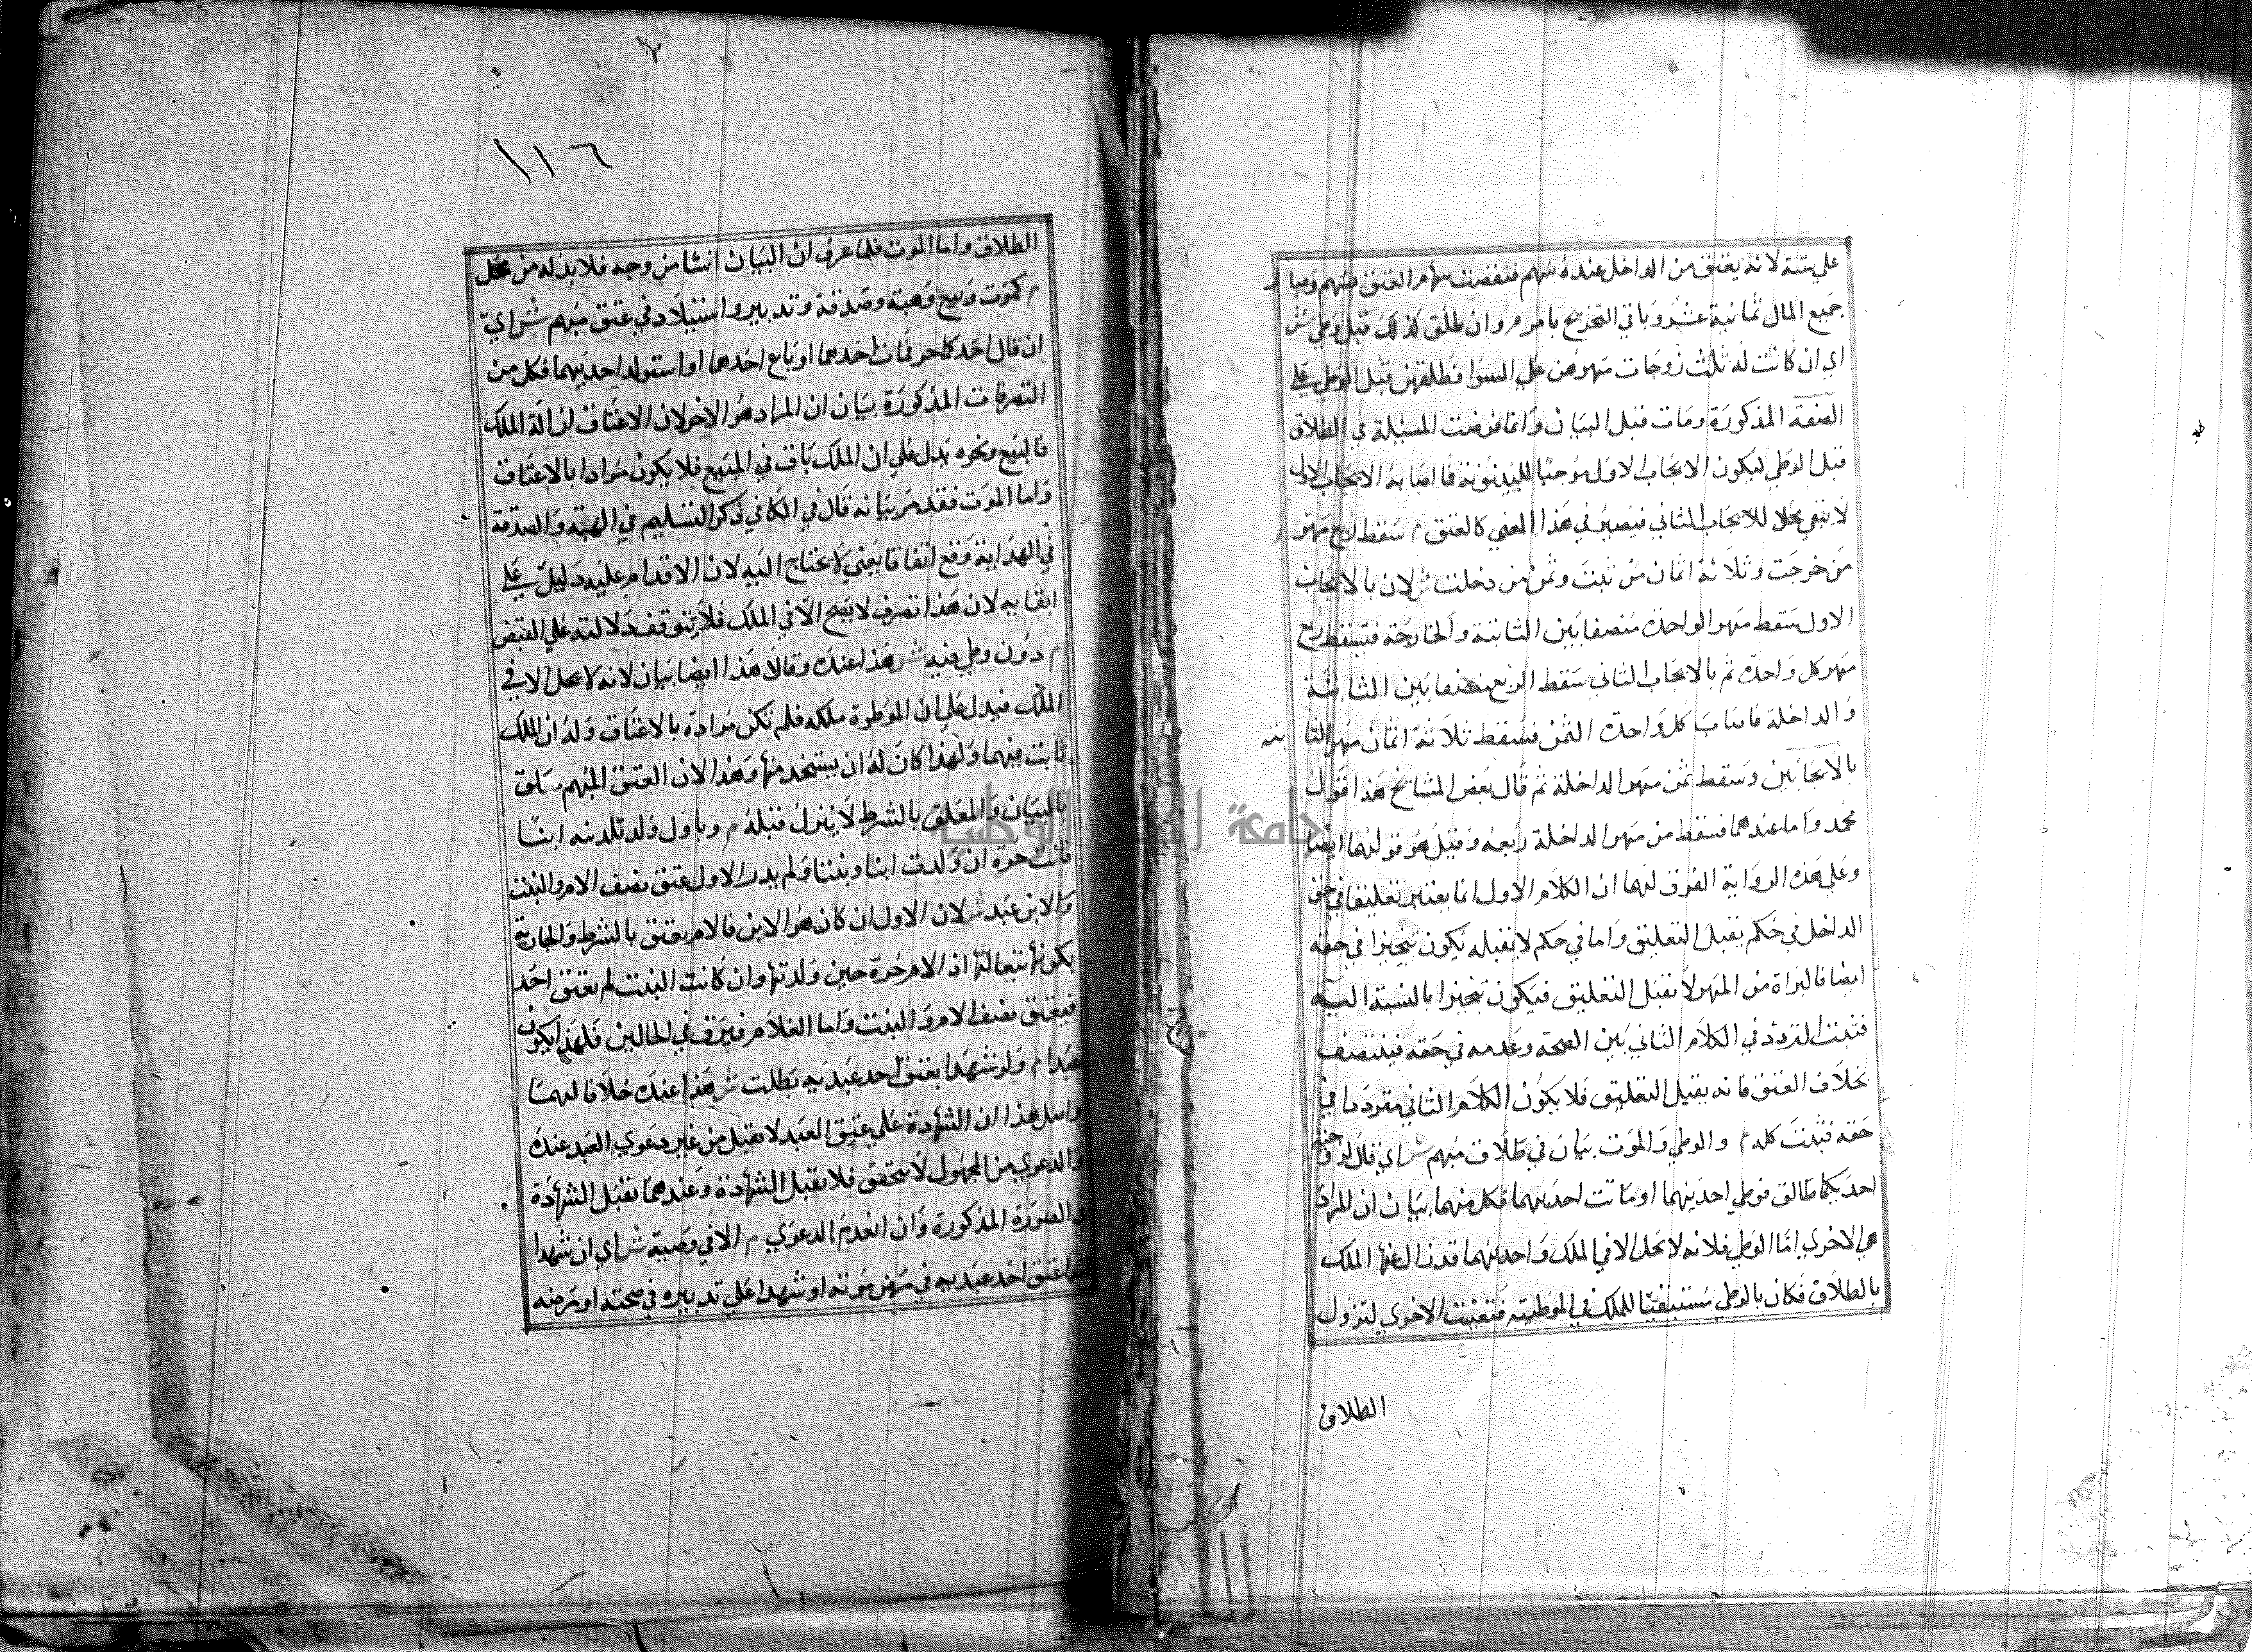 علي ستة لانه يعتق من الداخل عنده سهم فنقصت سهام العتق بسهم وصار
جميع المال ثمانية عشر وباقي التخريج بامر م وان طلق كذلك قبل وطي ش
اي ان كانت له ثلث زوجات مهرهن علي السوا فطلقهن قبل الوطي علي
الصفة المذكورة ومات قبل البيان وانما فرضت المسئلة في الطلاق
قبل الوطي ليكون الايجاب الاول موجبا للبينونة فما اصابه الايجاب الاول
لا يبقي محلا للايجاب الثاني فيصير في هذا المعني كالعتق م سقط ربع مهر
من خرجت وثلاثة اثمان من ثبتت وثمن من دخلت ش لان بالايجاب
الاول سقط مهر الواحدة منصفا بين الثابتة والخارجة فتسقط ربع
مهر كل واحدة ثم بالايجاب الثاني سقط الربع منصفا بين الثابتة
والداخلة فاصاب كل واحدة الثمن فسقط ثلاثة اثمان مهر الثا بتة
بالايجابين وسقط ثمن مهر الداخلة ثم قال بعض المشائخ هذا قول
محمد واما عندهما فسقط من مهر الداخلة ربعه وقيل هو قولهما ايضا
وعلي هذه الرواية الفرق لهما ان الكلام الاول انما يعتبر تعليقا في حق
الداخل في حكم يقبل التعليق واما في حكم لا يقبله يكون تنجيزا في حقه
ايضا فالبراة من المهر لا تقبل التعليق فيكون تنجيزا بالنسبة اليه
فثبت التردد في الكلام الثاني بين الصحة وعدمه في حقه فينتصف
بخلاف العتق فانه يقبل التعليق فلا يكون الكلام الثاني مترددا في
حقه فثبت كله م والوطي والموت بيان في طلاق مبهم ش اي قال لزوجتيه
احديكما طالق فوطي احديهما او ماتت احديهما فكل منهما بيان ان المراد
هي الاخري اما الوطي فلانه لا يحل الا في الملك واحديهما قد زال عنها الملك
بالطلاق فكان بالوطي مستبقيا للملك في الموطئة فتعينت الاخري لزوال
الطلاق
١١٦
الطلاق واما الموت فلما عرف ان البيان انشا من وجه فلا بد له من محل
م كموت وبيع وهبة وصدقة وتدبير واستيلاد في عتق مبهم ش اي
ان قال احدكما حر فمات احدهما او باع احدهما او استولد احديهما فكل من
التصرفات المذكورة بيان ان المراد هو الاخر لان الاعتاق ازالة الملك
فالبيع ونحوه يدل علي ان الملك باق في المبيع فلا يكون مرادا بالاعتاق
واما الموت فقد مر بيانه قال في الكافي ذكر التسليم في الهبة والصدقة
في الهداية وقع اتفاقا يعني لا يحتاج اليه لان الاقدام عليه دليل علي
ابقايه لان هذا تصرف لا يصح الا في الملك فلا يتوقف دلالته علي القبض
م دون وطي فيه ش هذا عنده وقالا هذا ايضا بيان لانه لا يحل الا في
الملك فيدل علي ان الموطوة ملكه فلم تكن مرادة بالاعتاق وله ان الملك
ثابت فيهما ولهذا كان له ان يستخدمها وهذا لان العتق المبهم معلق
بالبيان والمعلق بالشرط لا ينزل قبله م وباول ولد تلدينه ابنا
فانت حرة ان ولدت ابنا وبنتا ولم يدر الاول عتق نصف الام والبنت
والابن عبد ش لان الاول ان كان هو الابن فالام يعتق بالشرط والجارية
بكونها تبعا لها اذ الام حرة حين ولدتها وان كانت البنت لم يعتق احد
فيعتق نصف الام والبنت واما الغلام فيرق في الحالين فلهذا يكون
عبدا م ولو شهدا بعتق احد عبديه بطلت ش هذا عنده خلافا لهما
واصل هذا ان الشهادة علي عتق العبد لا تقبل من غير دعوي العبد عنده
والدعوي من المجهول لا يتحقق فلا تقبل الشهادة وعندهما تقبل الشهادة
في الصورة المذكورة وان انعدم الدعوي م الا في وصية ش اي ان شهدا
انه اعتق احد عبديه في مرض موته او شهدا علي تدبيره في صحته او مرضه